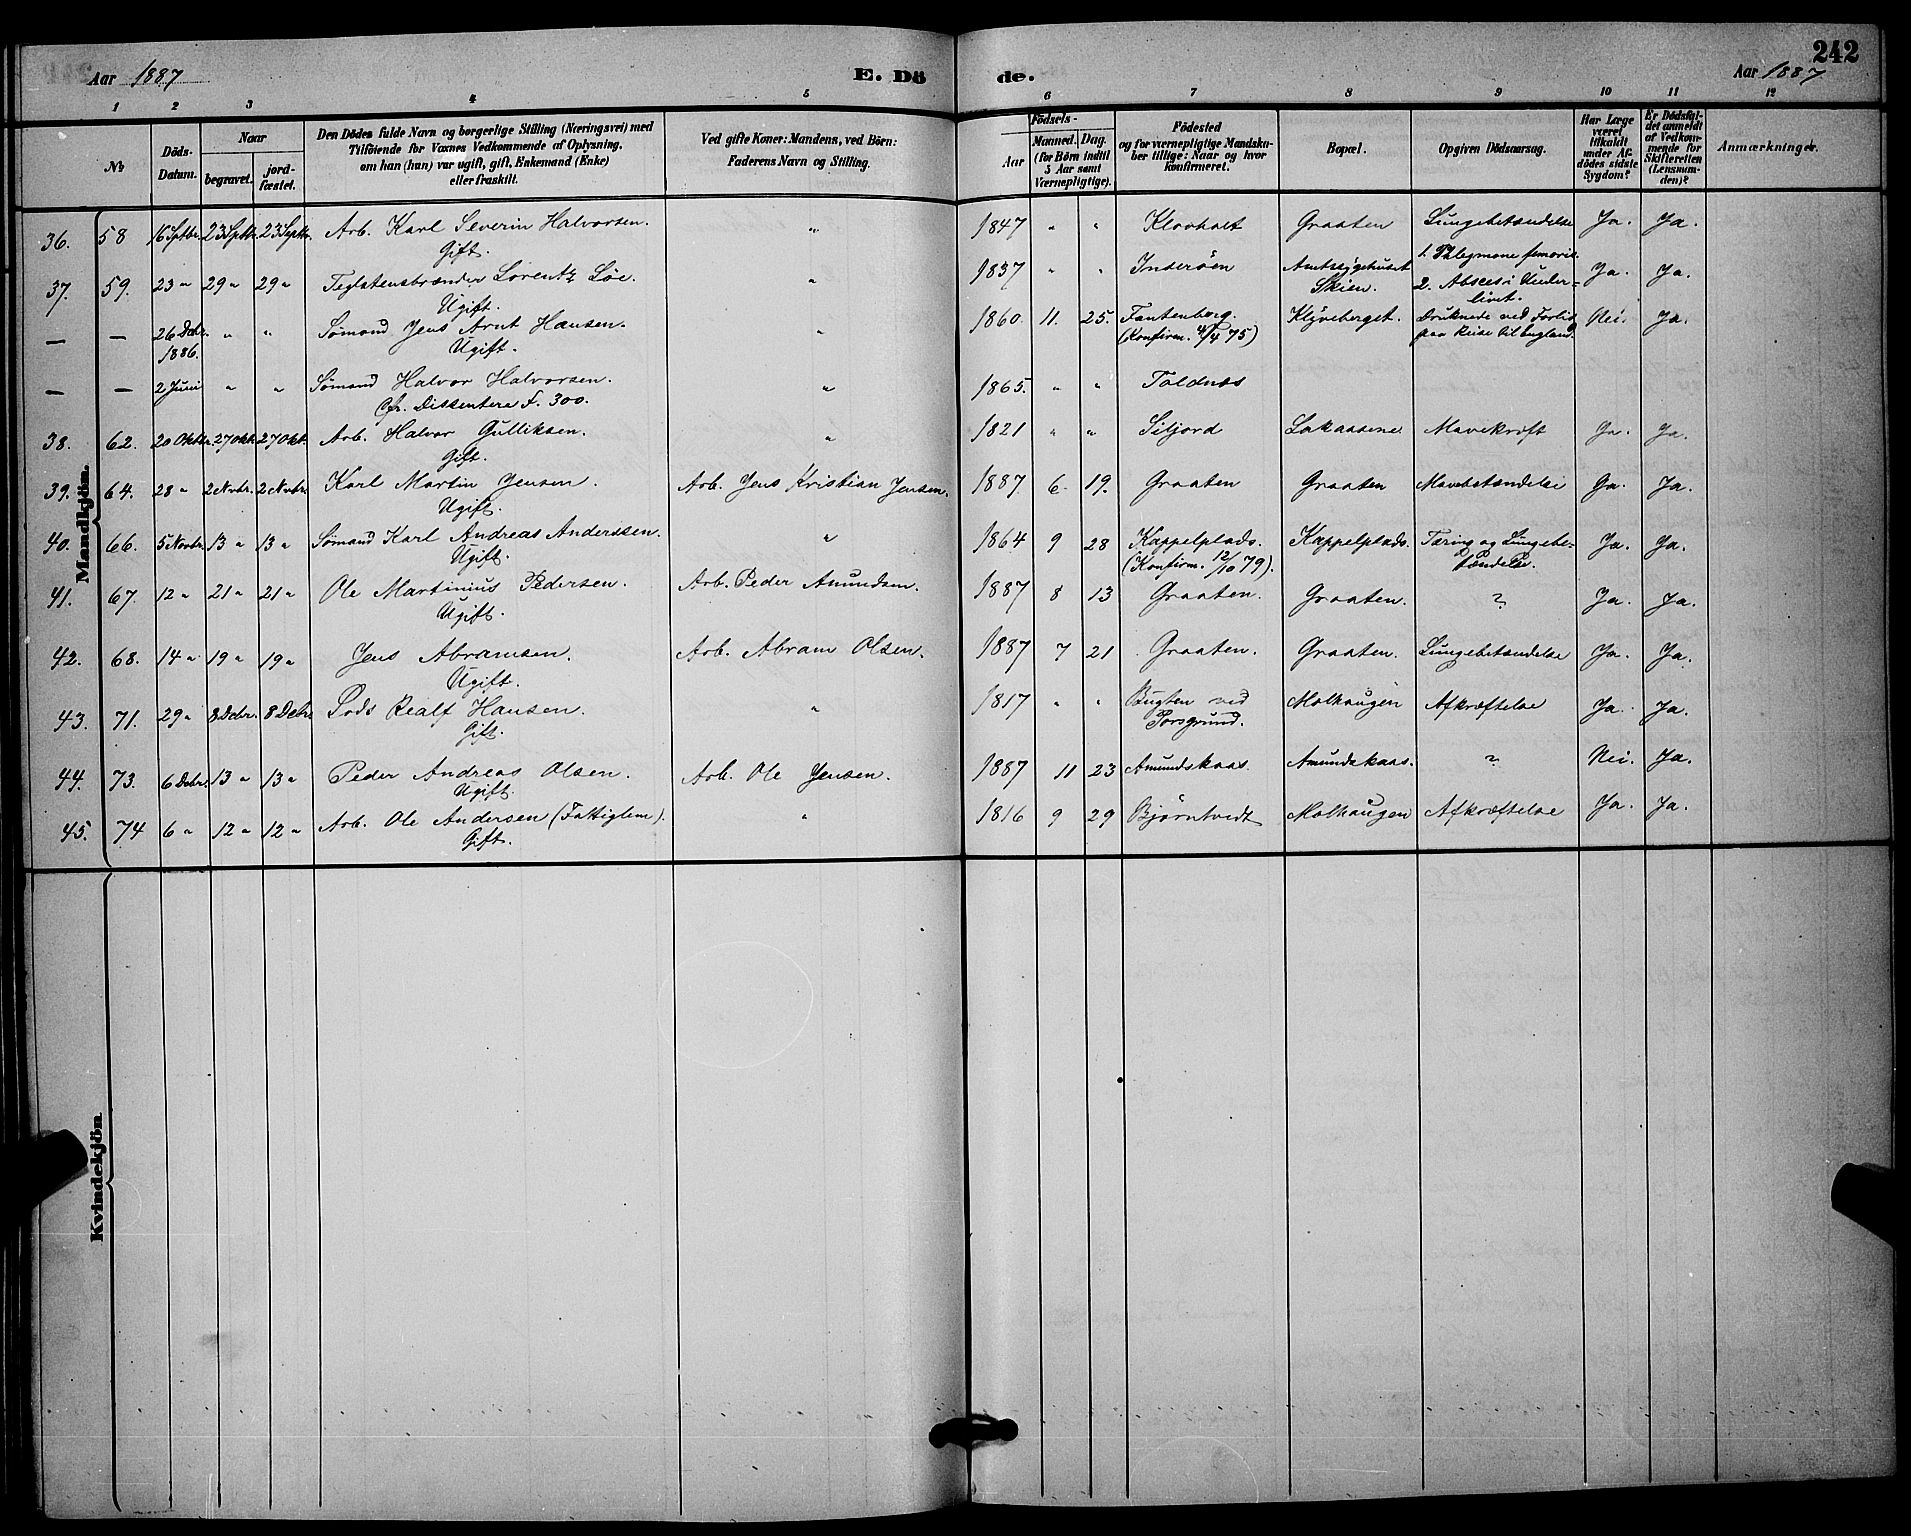 242
Aar 1887 E. Dö de. Aar 1887
1 2 3 4 5 6 7 8 9 10 11 12
№
Döds-Datum.
Naar
begravet.
jord-fæstet.
Den Dödes fulde Navn og borgerlige Stilling (Næringsvei) med
Tilföiende for Voxnes Vedkommende af Oplysning,
om han (hun) var ugift, gift, Enkemand (Enke)
eller fraskilt.
Ved gifte Koner: Mandens, ved Börn:
Faderens Navn og Stilling.
Födsels-
Aar
Maaned. Dag.
(for Börn indtil
5 Aar samt
Værnepligtige).
Födested
og for værnepligtige Mandskaber tillige: Naar og hvor
konfirmeret.
Bopæl.
Opgiven Dödsaarsag.
Har Læge
været
tilkaldt
under Afdödes sidste
Sygdom?
Er Dödsfaldet anmeldt
af Vedkommende for
Skifteretten
(Lensmanden)?
Anmærkninger.
Mandkjön.
36. 58 16 Septbr. 23 Septbr. 23 Septbr. Arb. Karl Severin Halvorsen. " 1847 " " Klovholt Graaten Lungebetændelse Ja. Ja.
Gift.
37. 59. 23 " 29 " 29 " Teglstensbrænder Lorentz Löe. " 1837 " " Inderöen Amtssygehuset Skien. 1. Phlegmone femoris 2. Absces i Underlivet. Ja. Ja.
Ugift.
— — 26 Decbr. 1886. " " Sømand Jens Arnt Hansen. " 1860. 11. 25. Fantenborg. Klyveberget. Druknede ved Forlis Nei. Ja.
Ugift. (Konfirm. 4/4 75) paa Reise til England.
— — 2 Juni " " Sømand Halvor Halvorsen. " 1865. " " Toldnæs
Cfr. Dissentere F. 300.
38. 62. 20 Oktbr. 27 Okt. 27 Okt. Arb. Halvor Gulliksen. " 1821 " " Siljord Lakaasene Mavekræft Ja. Ja.
Gift.
39. 64. 28 " 2 Novbr. 2 Novbr. Karl Martin Jensen. Arb. Jens Kristian Jensen. 1887. 6 19. Graaten Graaten Mavebetændelse Ja. Ja.
Ugift.
40. 66. 5 Novbr. 13 " 13 " Sømand Karl Andreas Anderssen. " 1864 9 28 Kappelplads. Kappelplads. Tæring og Lungebe-
Ugift. (Konfirm. 12/10 79). tændelse. Ja. Ja.
41. 67. 12 " 21 " 21 " Ole Martinius Pedersen. Arb. Peder Amundsen. 1887 8 13 Graaten. Graaten. ? Ja. Ja.
Ugift.
42. 68. 14 " 19 " 19 " Jens Abramsen. Arb. Abram Olsen. 1887 7 21 Graaten. Graaten. Lungebetændelse Ja. Ja.
Ugift.
43. 71. 29 " 8 Debr. 8 Debr. Lods Realf Hansen. " 1817 " " Bugten ved Molhaugen Afkræftelse Ja. Ja.
Gift. Porsgrund.
44. 73. 6 Debr. 13 " 13 " Peder Andreas Olsen. Arb. Ole Jensen. 1887 11 23 Amundskaas. Amundskaas. ? Nei. Ja.
Ugift.
45. 74 6 " 12 " 12 " Arb. Ole Andersen (Fattiglem). " 1816 9 29 Bjørntvedt Molhaugen Afkræftelse Ja. Ja.
Gift.
Kvindekjön.